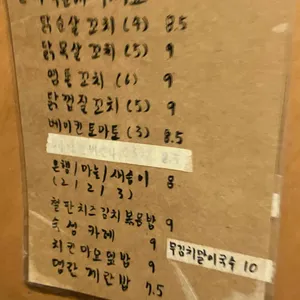 닭승살 꼬치 (4) 8.5
닭목살 꼬치 (5) 9
염통꼬치 (6) 9
닭껍질꼬치 (5) 9
베이컨토마토 (3) 8.5
은행/마늘/새송이 8
(2 1 2 1 3)
철판치즈김치볶음밥 9
숙성 카레 9
묵김치말이국수 10
치킨마요덮밥 9
명란 계란밥 7.5